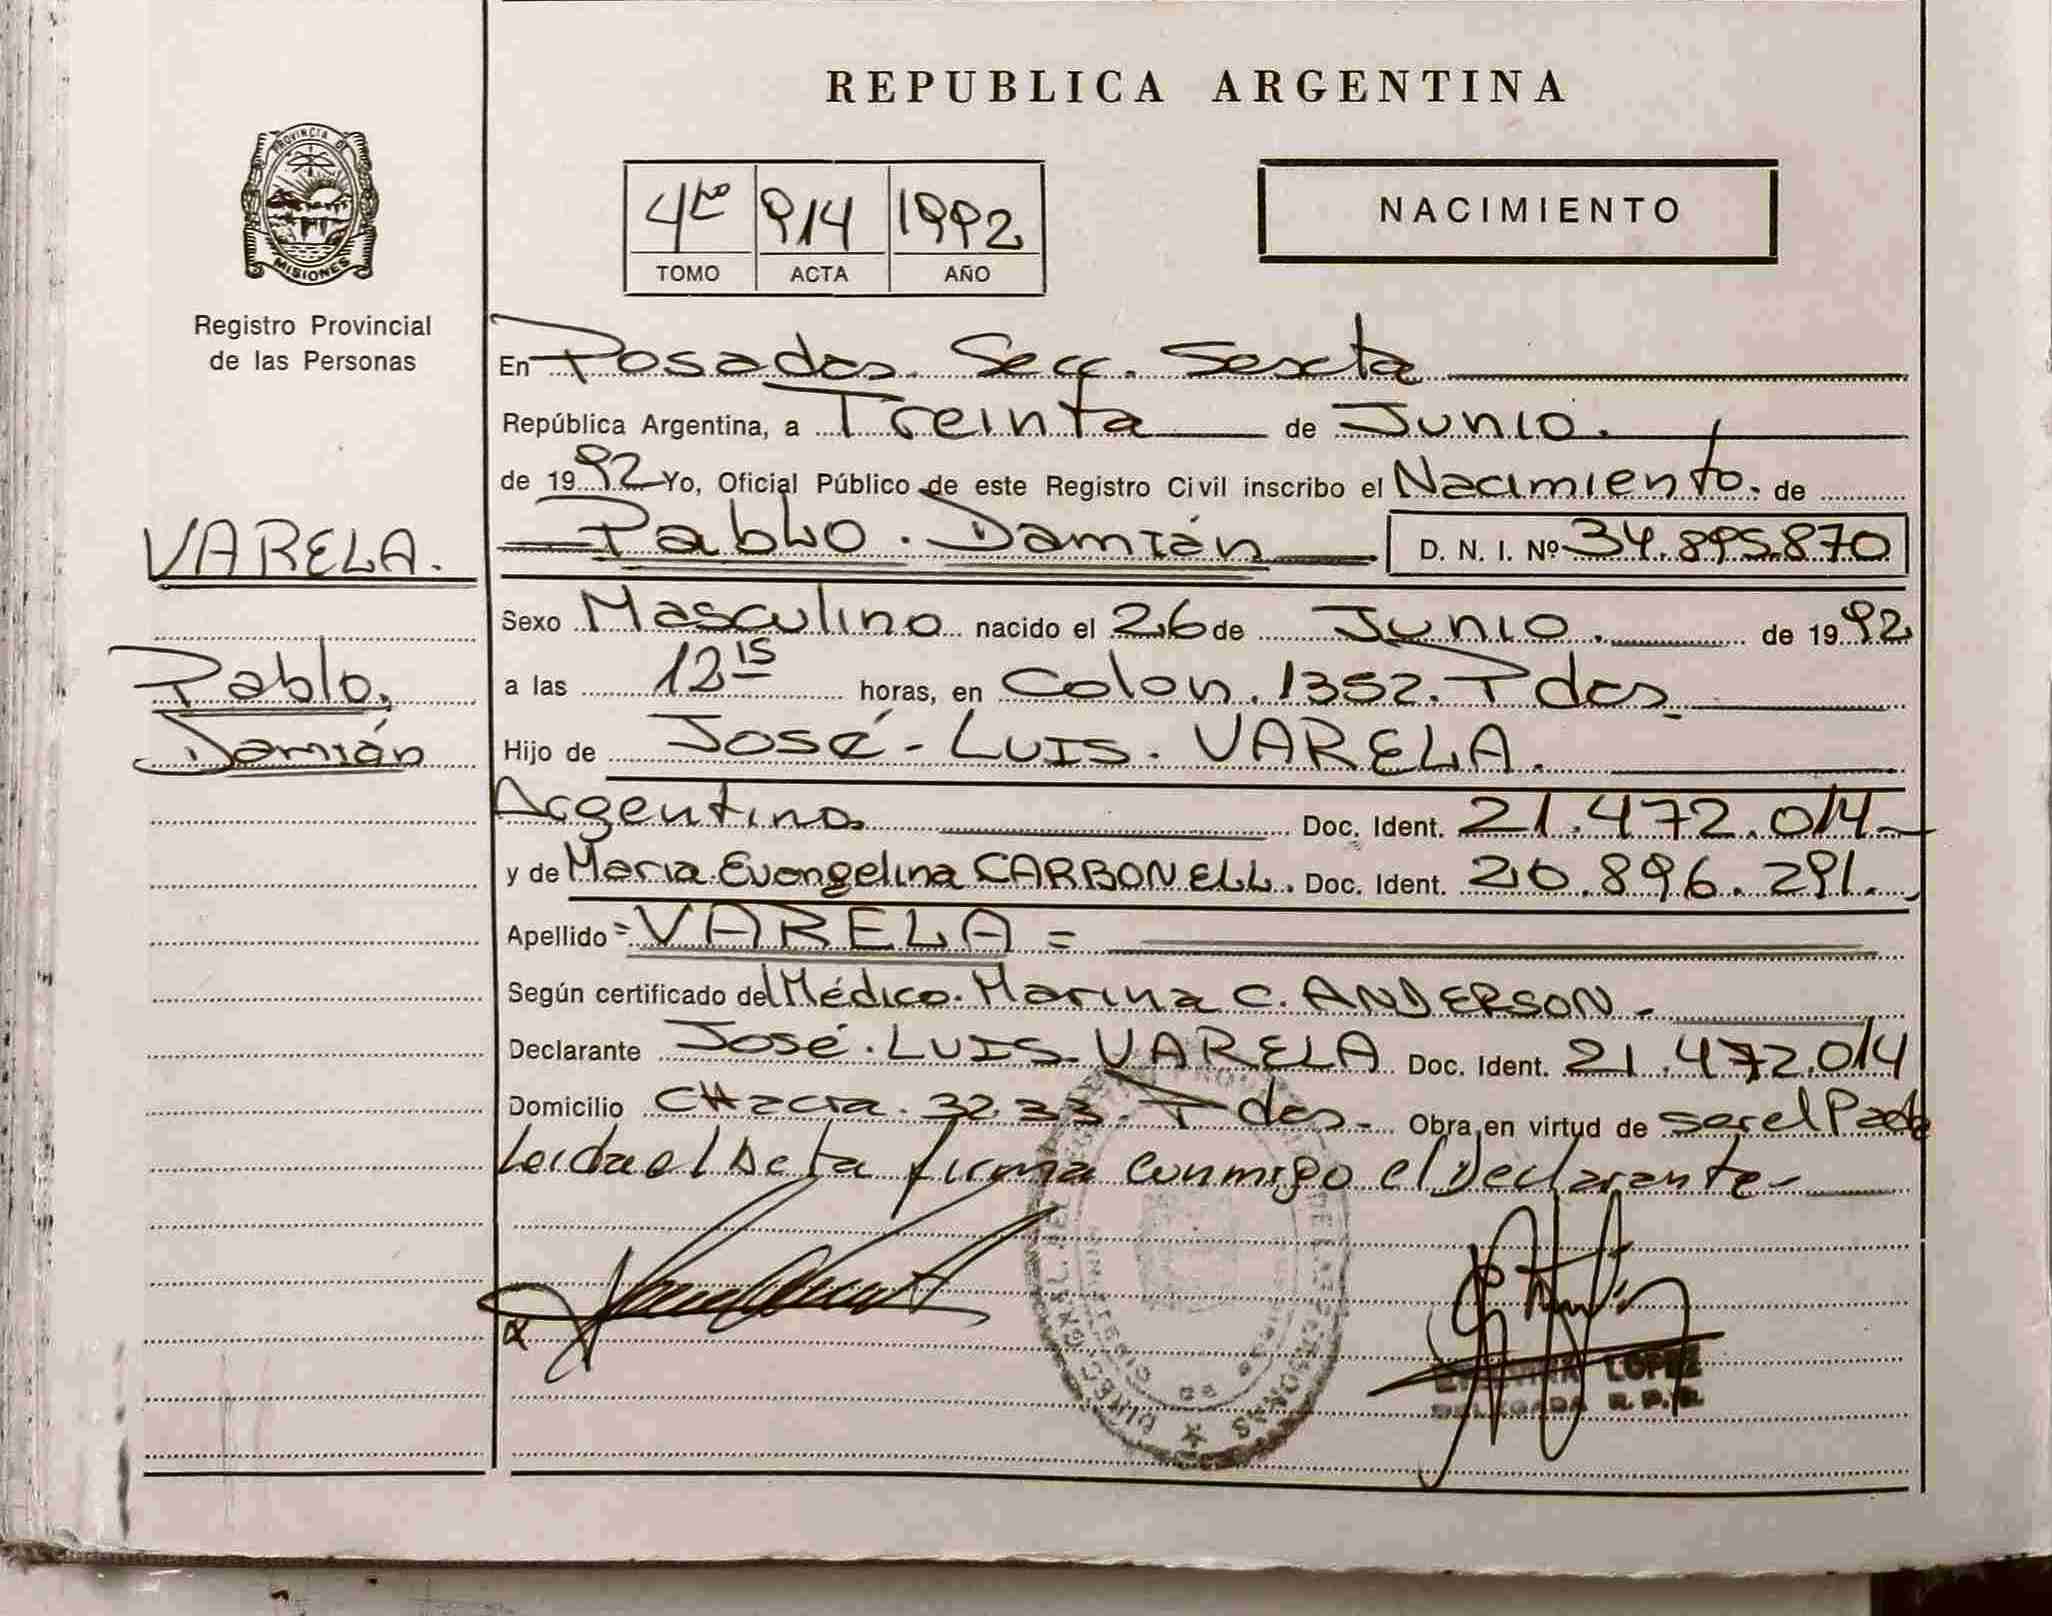 REPUBLICA ARGENTINA
PROVINCIA DE
MISIONES
Registro Provincial
de las Personas
4to 914 1992
TOMO ACTA AÑO
NACIMIENTO
En Posadas. Secc. Sexta
República Argentina, a Treinta de Junio.
de 1992 Yo, Oficial Público de este Registro Civil inscribo el Nacimiento. de
VARELA.
Pablo. Damián D. N. I. Nº 34.895.870
Sexo Masculino nacido el 26 de Junio. de 1992
Pablo.
a las 12 15 horas, en Colon. 1352. Pdas
Damián
Hijo de José - Luis. VARELA.
Argentino Doc. Ident. 21.472.014
y de Maria Evangelina CARBONELL. Doc. Ident. 20.896.291.
Apellido = VARELA =
Según certificado del Médico. Marina C. ANDERSON -
Declarante José. LUIS. VARELA Doc. Ident. 21.472.014
Domicilio CHacra. 32.33. Pdas. Obra en virtud de ser el Padre
Leida el Acta firma conmigo el Declarante -
LOPEZ
DELEGADA R. P.